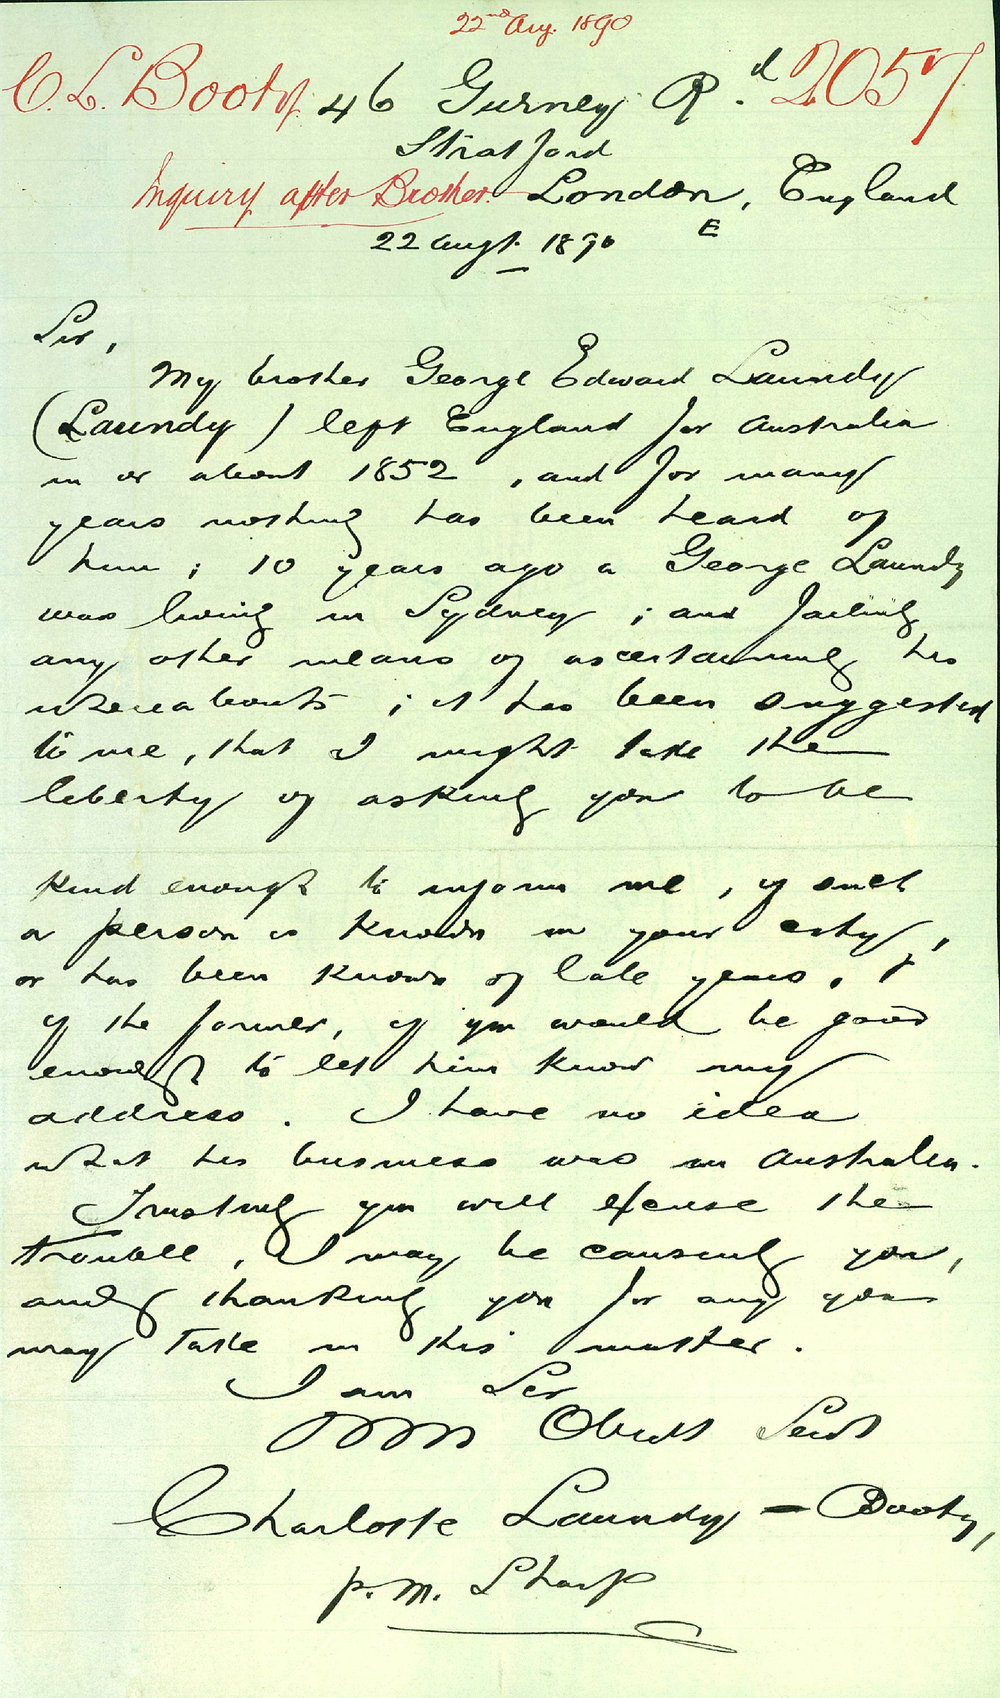 22nd Aug. 1890
C. L. Booty. 46 Gurney Rd. 2057
Stratford
Inquiry after Brother. London, England
E
22 Augt. 1890
Sir,
My brother George Edward Laundy
(Laundy) left England for Australia
in or about 1852, and for many
years nothing has been heard of
him; 10 years ago a George Laundy
was living in Sydney; and failing
any other means of ascertaining his
whereabouts; it has been suggested
to me, that I might take the
liberty of asking you to be
kind enough to inform me, if such
a person is known in your city,
or has been known of late years, &
if the former, if you would be good
enough to let him know my
address. I have no idea
what his business was in Australia.
Trusting you will excuse the
trouble, I may be causing you,
and thanking you for any you
may take in this matter.
I am Sir
Obedt Servt
Charlotte Laundy-Booty,
p. M. Sharp